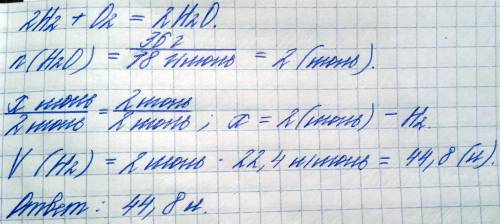 2H₂ + O₂ = 2H₂O.
n(H₂O) = 36 г / 18 г/моль = 2 (моль).
x моль / 2 моль = 2 моль / 2 моль ; x = 2 (моль) – H₂.
V (H₂) = 2 моль · 22,4 л/моль = 44,8 (л).
Ответ: 44,8 л.